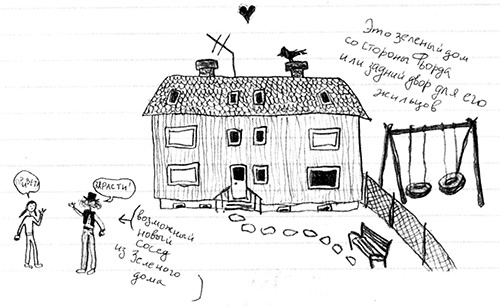 Это зеленый дом
со стороны Фьорда
или задний двор для его
жильцов
ЗРАСТИ!
(возможный
новый
сосед
из Зеленого
дома